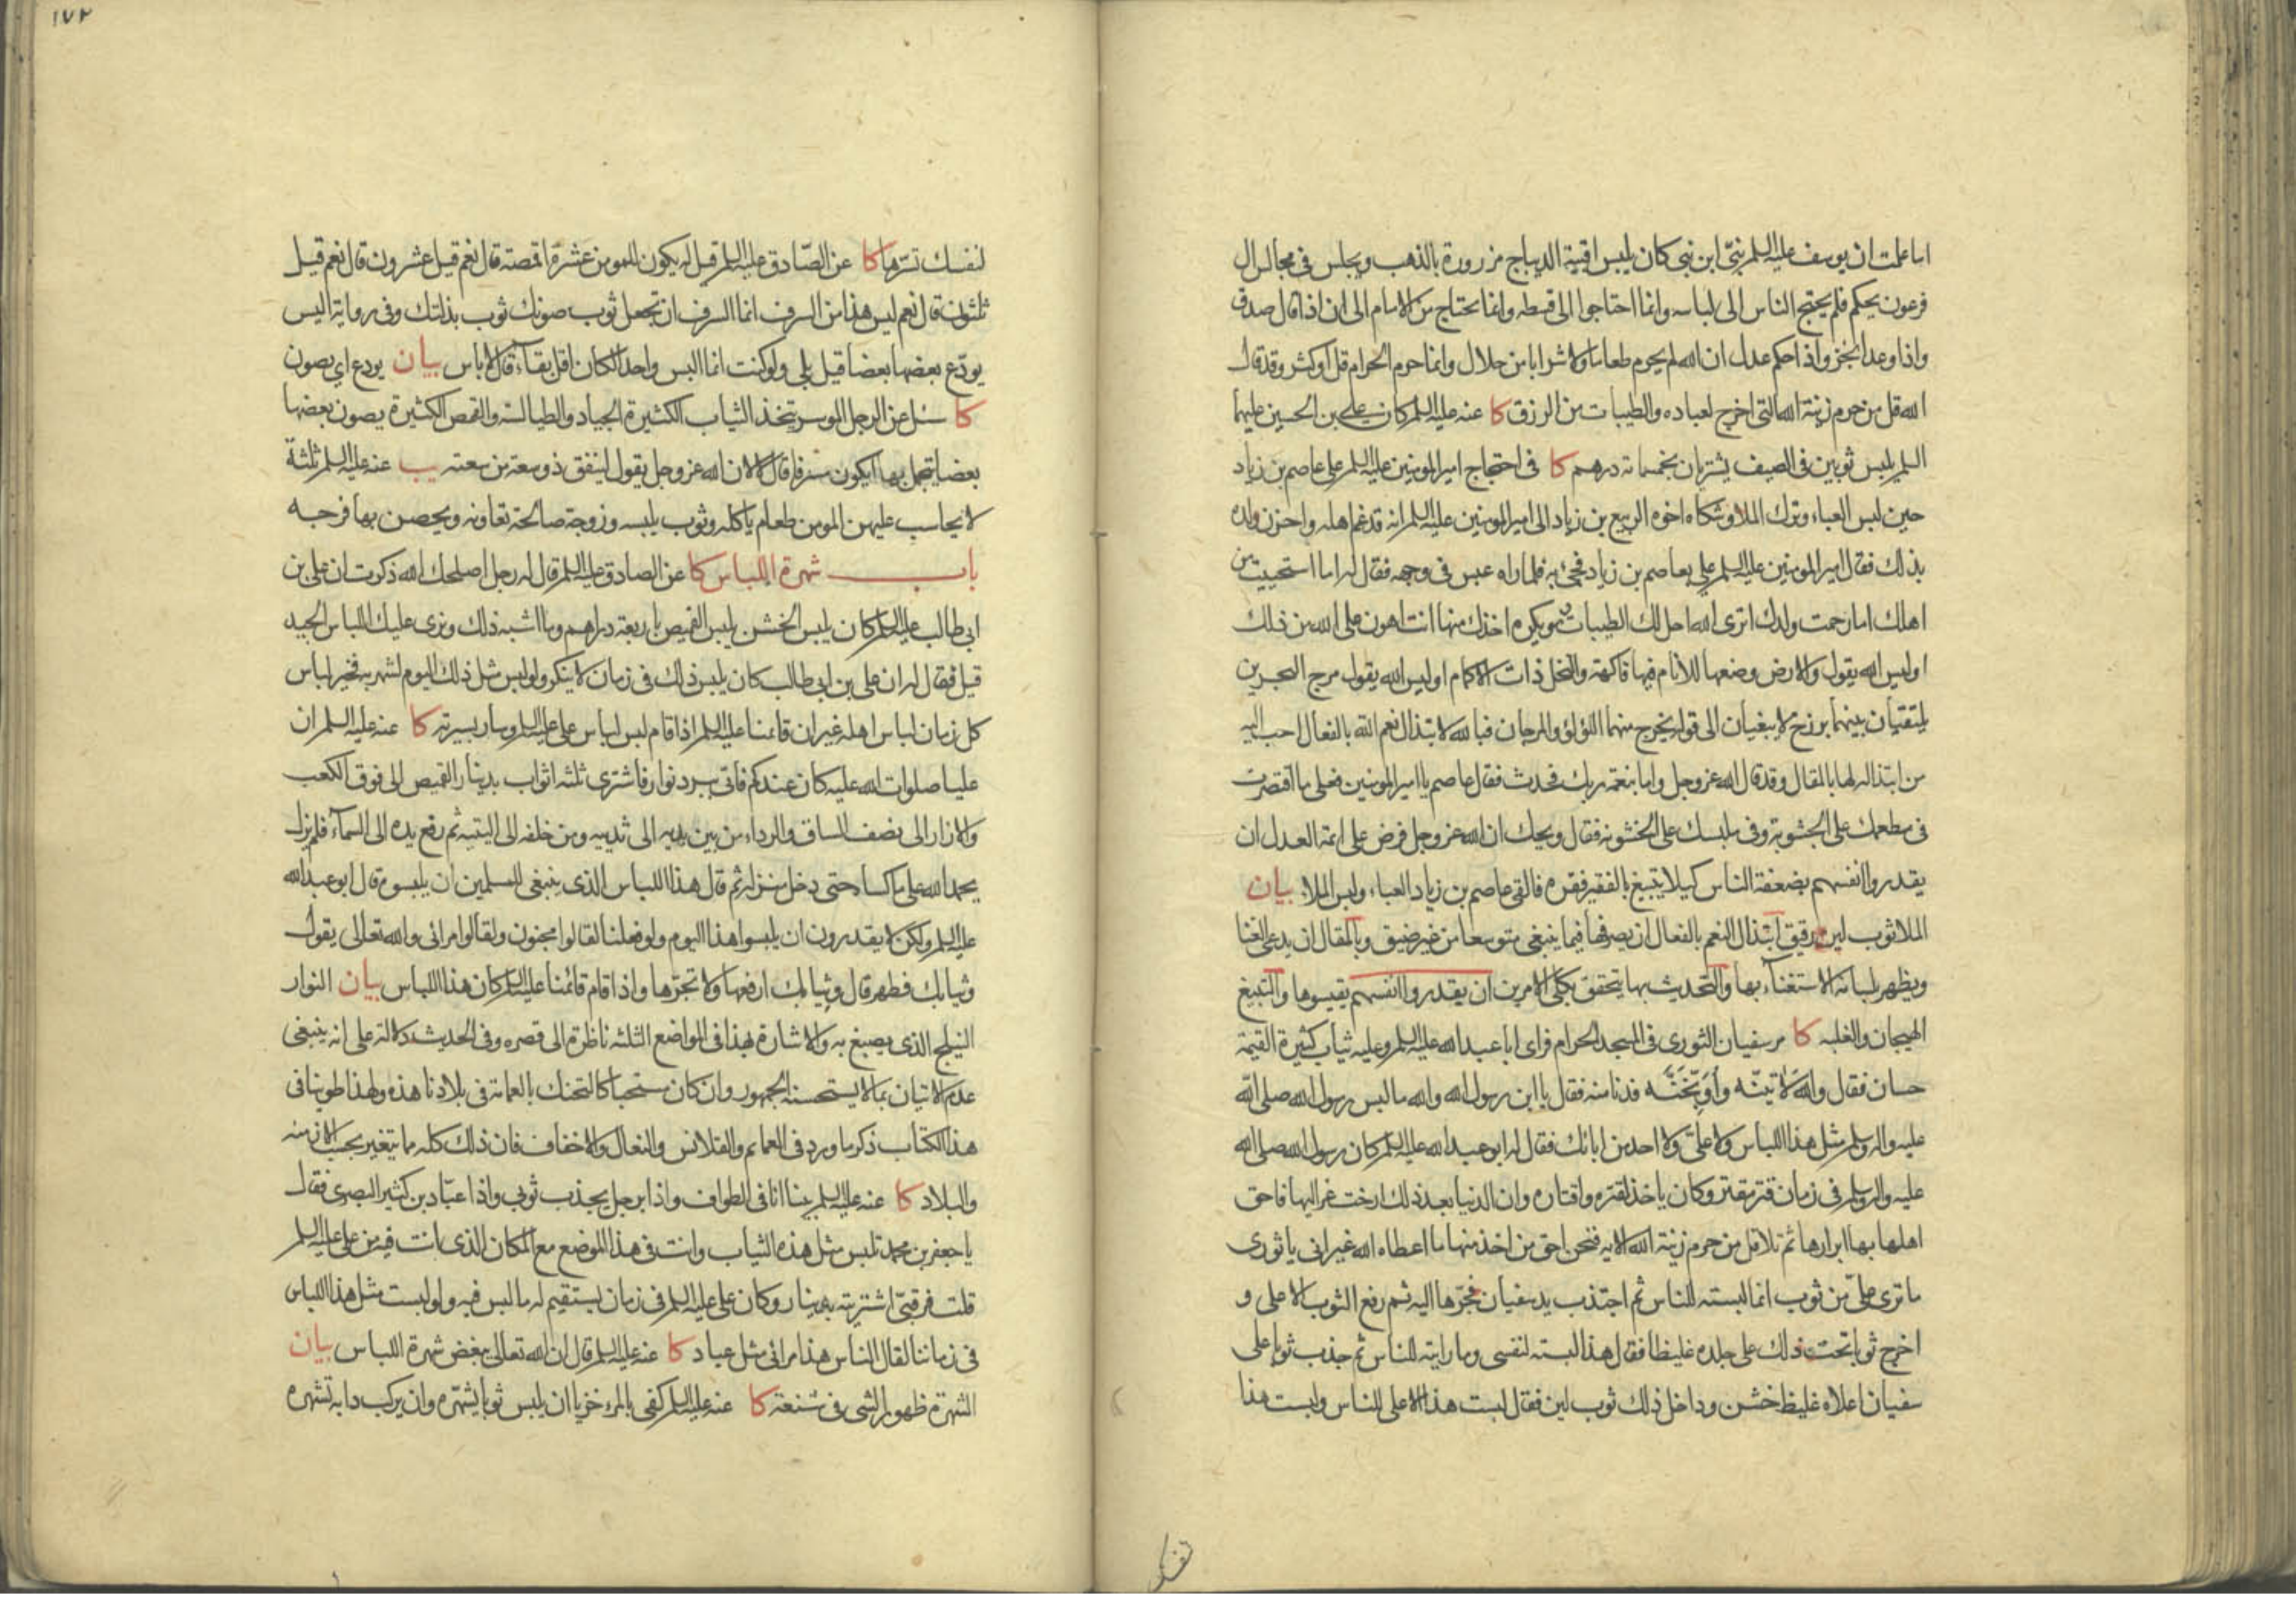 اما علمت ان يوسف عليه السلم نبىّ ابن نبى كان يلبس اقبية الديباج مزرورة بالذهب ويجلس فى مجالس ال
فرعون يحكم فلم يحتج الناس الى لباسه وانما احتاجوا الى قسطه وانما يحتاج من الامام الى ان اذا قال صدق
واذا وعد انجز واذا حكم عدل ان الله لم يحرم طعاما ولا شرابا من حلال وانما حرم الحرام قل او كثر وقد قال
الله قل من حرم زينة الله التى اخرج لعباده والطيبات من الرزق كا عنه عليه السلم كان على بن الحسين عليهما
السلم يلبس ثوبين فى الصيف يشتريان بخمسمائة درهم كا فى احتجاج امير المومنين عليه السلم على عاصم بن زياد
حين لبس العباء وترك الملا وشكاه اخوه الربيع بن زياد الى امير المومنين عليه السلم انه قد غم اهله واحزن ولده
بذلك فقال امير المومنين عليه السلم على بعاصم بن زياد فجئ به فلما راه عبس فى وجهه فقال له اما استحييت من
اهلك اما رحمت ولدك اترى الله احل لك الطيبات وهو يكره اخذك منها انت اهون على الله من ذلك
اوليس الله يقول والارض وضعها للانام فيها فاكهة والنخل ذات الاكمام اوليس الله يقول مرج البحرين
يلتقيان بينهما برزخ لا يبغيان الى قوله يخرج منهما اللؤلؤ والمرجان فبالله لابتذال نعم الله بالفعال احب اليه
من ابتذاله لها بالمقال وقد قال الله عز وجل واما بنعمة ربك فحدث فقال عاصم يا امير المومنين فعلى ما اقتصرت
فى مطعمك على الجشوبة وفى ملبسك على الخشونه فقال ويحك ان الله عز وجل فرض على ائمة العدل ان
يقدروا انفسهم بضعفة الناس كيلا يتبيغ بالفقير فقره فالقى عاصم بن زياد العباء ولبس الملا بيان
الملا ثوب لين رقيق ابتذال النعم بالفعال ان يصرفها فيما ينبغى متوسعا من غير ضيق وبالمقال ان يدعى الغنا
ويظهر بلسانه الاستغناء بها والتحديث بها يتحقق بكلى الامرين ان يقدروا انفسهم يقيسوها والتبيغ
الهيجان والغلبه كا مر سفيان الثورى فى المسجد الحرام فراى ابا عبد الله عليه السلم وعليه ثياب كثيرة القيمة
حسان فقال والله لاتينّه ولاوبّخنّه فدنا منه فقال يا ابن رسول الله والله ما لبس رسول الله صلى الله
عليه واله وسلم مثل هذا اللباس ولا علىّ ولا احد من ابائك فقال له ابو عبد الله عليه السلم كان رسول الله صلى الله
عليه واله وسلم فى زمان قتر مقتر وكان ياخذ لقتره واقتاره وان الدنيا بعد ذلك ارخت عزاليها فاحق
اهلها بها ابرارها ثم تلا قل من حرم زينة الله الايه فنحن احق من اخذ منها ما اعطاه الله غير انى يا ثورى
ما ترى علىّ من ثوب انما البسته للناس ثم اجتذب يد سفيان فجرّها اليه ثم رفع الثوب الاعلى و
اخرج ثوبا تحت ذلك على جلده غليظا فقال هذا لبسته لنفسى وما رايته للناس ثم جذب ثوبا على
سفيان اعلاه غليظ خشن وداخل ذلك ثوب لين فقال لبست هذا الاعلى للناس ولبست هذا
١٧٢
لنفسك تسرّها كا عن الصّادق عليه السلم قيل له يكون للمومن عشرة اقمصة قال نعم قيل عشرون قال نعم قيل
ثلثون قال نعم ليس هذا من السرف انما السرف ان تجعل ثوب صونك ثوب بذلتك وفى رواية اليس
يودّع بعضها بعضا قيل بلى ولو كنت انما البس واحدا لكان اقل بقاء قال لا باس بيان يودع اى يصون
كا سئل عن الرجل الموسر يتخذ الثياب الكثيرة الجياد والطيالسة والقمص الكثيرة يصون بعضها
بعضا يتجمل بها ايكون مسرفا قال لا لان الله عز وجل يقول لينفق ذو سعة من سعته يب عنه عليه السلم ثلثة
لا يحاسب عليهن المومن طعام ياكله وثوب يلبسه وزوجة صالحة تعاونه ويحصن بها فرجه
باب شهرة اللباس كا عن الصادق عليه السلم قال له رجل اصلحك الله ذكرت ان على بن
ابى طالب عليه السلم كان يلبس الخشن يلبس القميص باربعة دراهم وما اشبه ذلك ونرى عليك اللباس الجيد
قيل فقال له ان على بن ابى طالب كان يلبس ذلك فى زمان لا ينكر ولو لبس مثل ذلك اليوم لشهر به فخير لباس
كل زمان لباس اهله غير ان قائمنا عليه السلم اذا قام لبس لباس على عليه السلم وسار بسيرته كا عنه عليه السلم ان
عليا صلوات الله عليه كان عندكم فاتى ببرد نوار فاشترى ثلثه اثواب بدينار القميص الى فوق الكعب
والازار الى نصف الساق والرداء من بين يديه الى ثدييه ومن خلفه الى اليتيه ثم رفع يده الى السماء فلم يزل
يحمد الله على ما كساه حتى دخل منزله ثم قال هذا اللباس الذى ينبغى للمسلمين ان يلبسوه قال ابو عبد الله
عليه السلم ولكن لا يقدرون ان يلبسوا هذا اليوم ولو فعلنا لقالوا مجنون ولقالوا مرائى والله تعالى يقول
وثيابك فطهر قال وثيابك ارفعها ولا تجرّها واذا قام قائمنا عليه السلم كان هذا اللباس بيان النوار
النيلج الذى يصبغ به والاشارة بهذا فى المواضع الثلثه ناظرة الى قصره وفى الحديث دلالة على انه ينبغى
عدم الاتيان بما لا يستحسنه الجمهور وان كان مستحبا كالتحنك بالعمامة فى بلادنا هذه ولهذا طوينا فى
هذا الكتاب ذكر ما ورد فى العمايم والقلانس والنعال والاخفاف فان ذلك كله مما يتغير بحسب الازمنه
والبلاد كا عنه عليه السلم بينا انا فى الطواف واذا برجل يجذب ثوبى واذا عبّاد بن كثير البصرى فقال
يا جعفر بن محمد تلبس مثل هذه الثياب وانت فى هذا الموضع مع المكان الذى انت فيه من على عليه السلم
قلت فرقبىّ اشتريته بدينار وكان على عليه السلم فى زمان يستقيم له ما لبس فيه ولو لبست مثل هذا اللباس
فى زماننا لقال الناس هذا مرائى مثل عباد كا عنه عليه السلم قال ان الله تعالى يبغض شهرة اللباس بيان
الشهرة ظهور الشى فى شنعة كا عنه عليه السلم كفى بالمرء خزيا ان يلبس ثوبا يشهّره وان يركب دابة تشهره